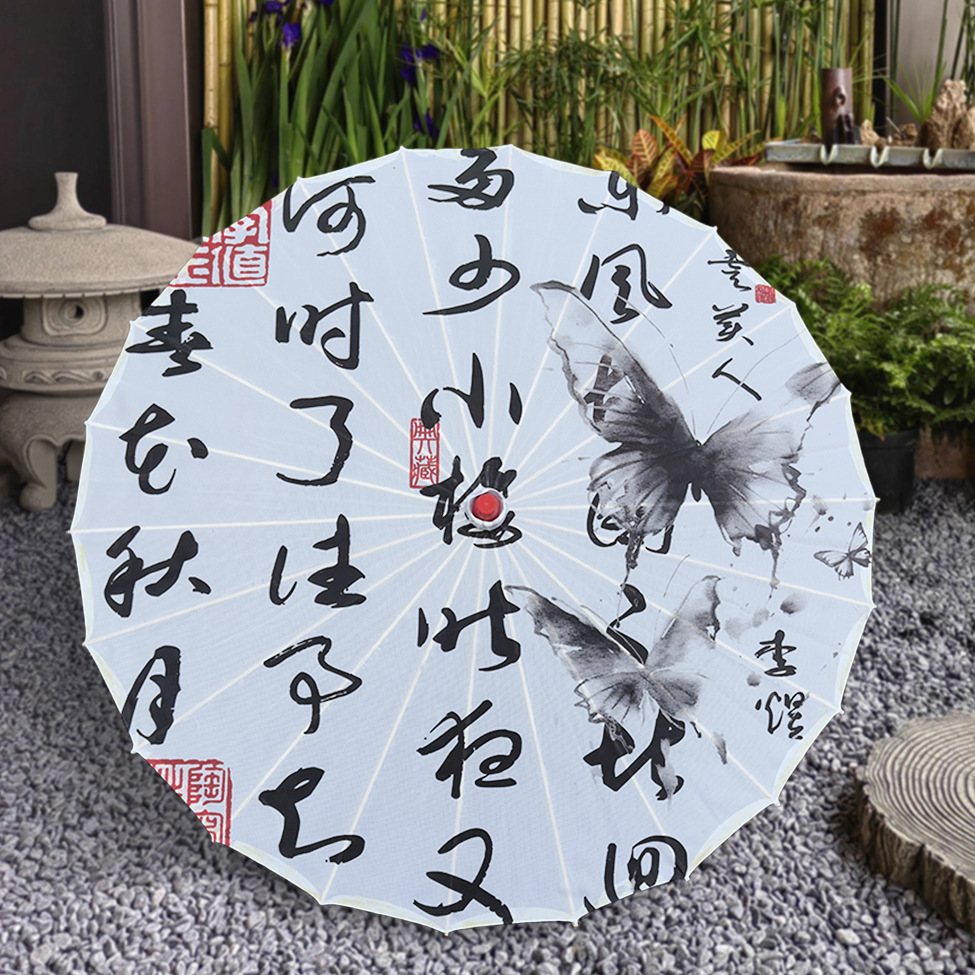 春花秋月
何时了往事知
多少小楼昨夜又
东风故国不堪回
虞美人
李煜
典藏